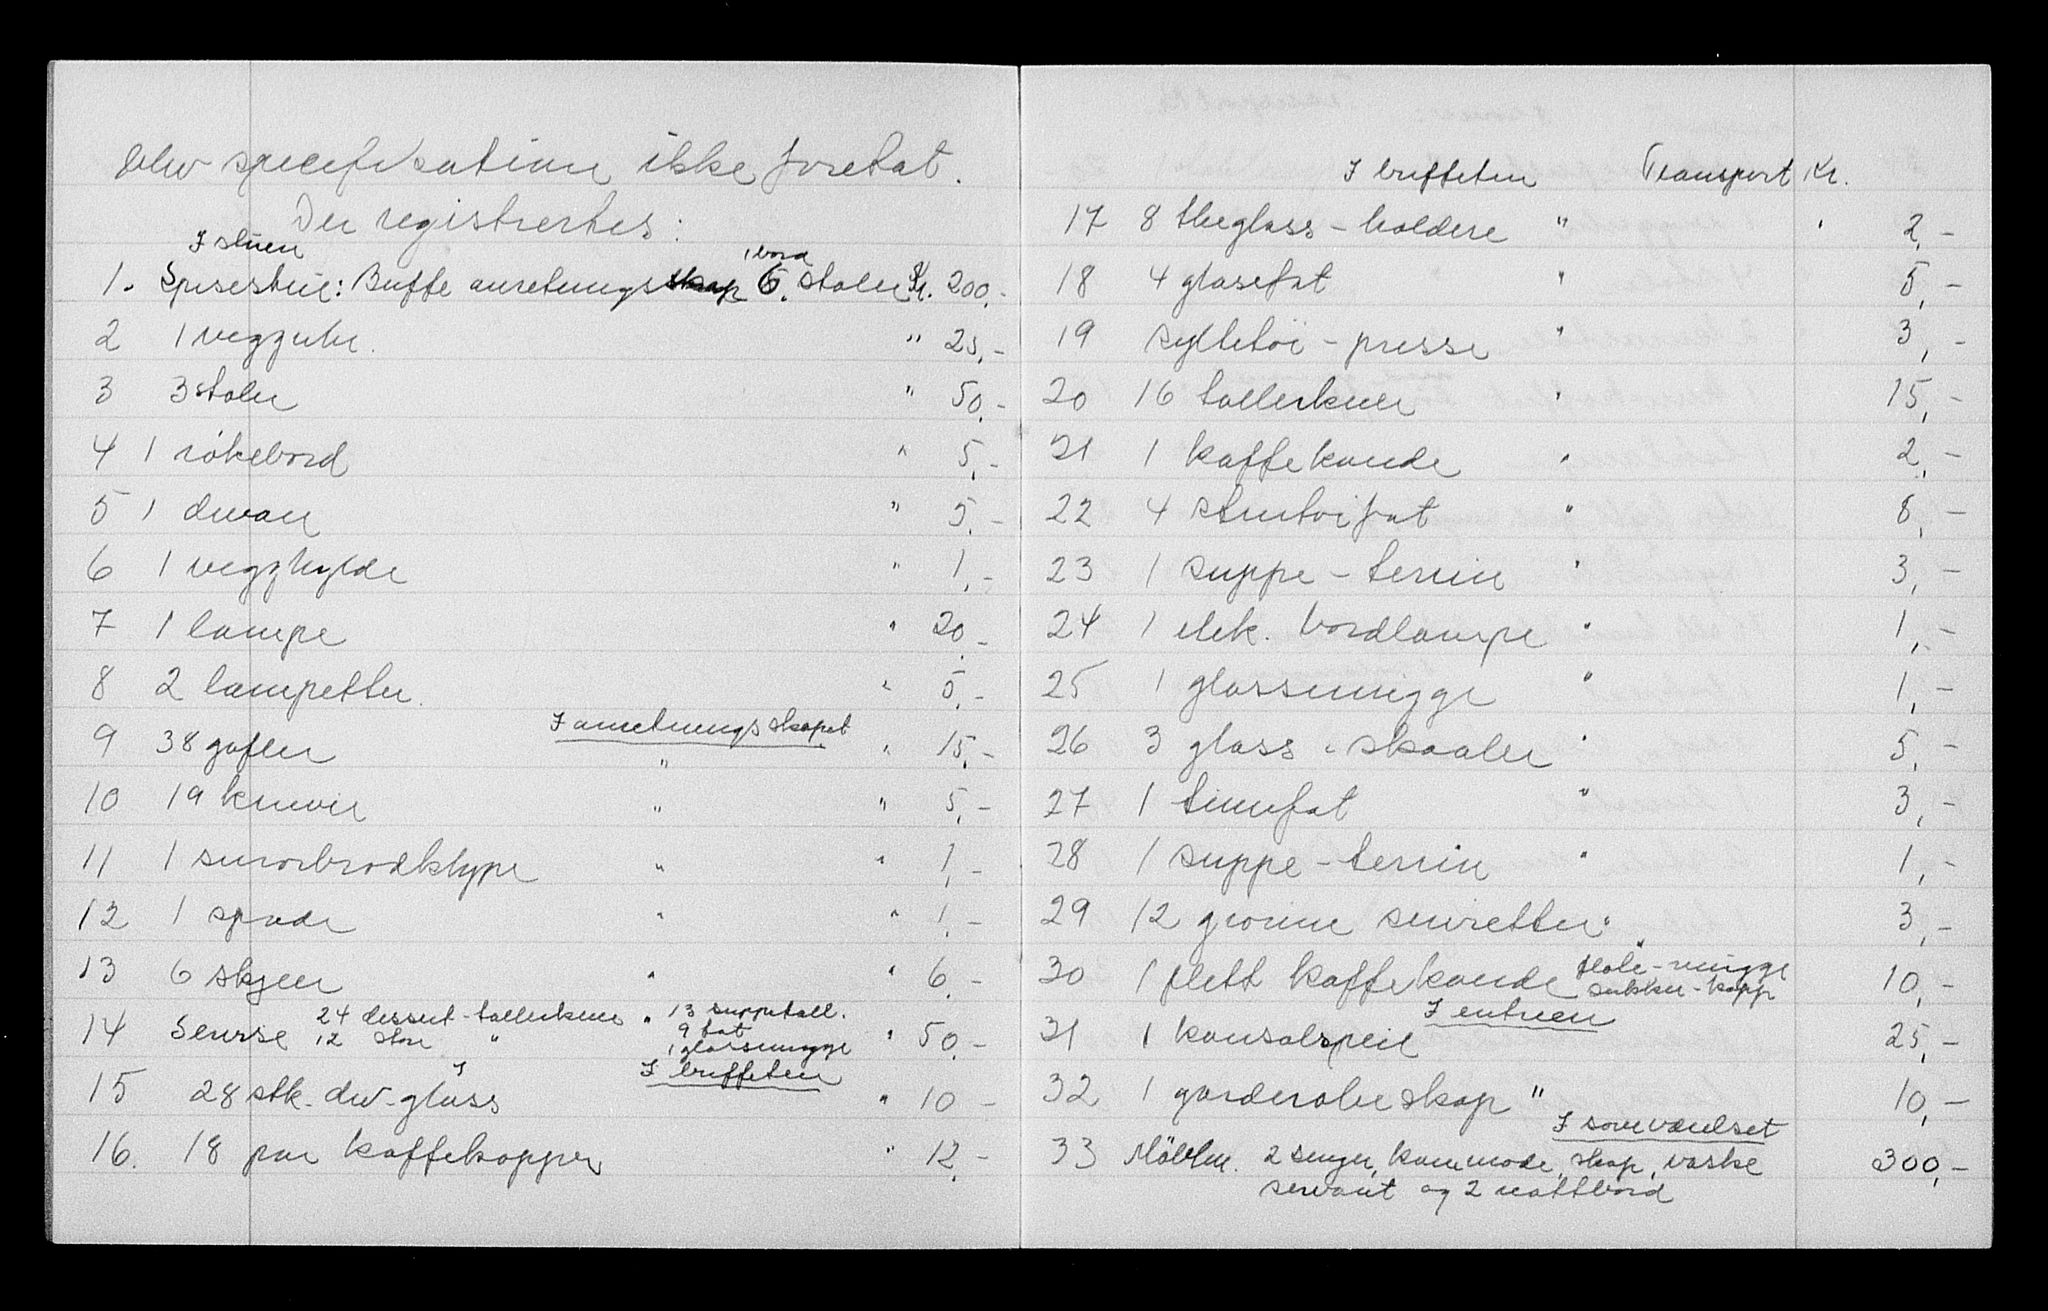 blev specifikation ikke foretat.
Der registrertes:
I stuen
1. Spisestue: Buffe anretningsskap 1 bord 6. stoler Kr. 200,-
2 1 vegguhr. " 25,-
3 3 stoler " 50,-
4 1 rökebord " 5,-
5 1 divan " 5,-
6 1 vegghylde " 1,-
7 1 lampe " 20,-
8 2 lampetter. " 5,-
I anretningsskapet
9 38 gafler " " 15,-
10 19 kniver " " 5,-
11 1 smörbrödklype " " 1,-
12 1 spade " " 1,-
13 6 skjeer " " 6,-
14 Servise 24 dessert-tallerkener " 13 suppetall. " 50,-
12 store " 9 fat
1 glassmugge
I buffeten
15 28 stk. div. glass " 10 -
16. 18 par kaffekopper " 12,-
I buffeten Transport Kr.
17 8 theglass-holdere " " 2,-
18 4 glasefat " 5,-
19 syltetöi-presse " 3,-
20 16 tallerkener " 15,-
21 1 kaffekande " 2,-
22 4 stentöifat " 8,-
23 1 suppe-terrin " 3,-
24 1 elek. bordlampe " 1,-
25 1 glassmugge " 1,-
26 3 glass-skaaler " 5,-
27 1 tinnfat " 3,-
28 1 suppe-terrin " 1,-
29 12 grönne servietter " 3,-
30 1 plett kaffekande flöte-mugge 10,-
sukker-kopp
I entreen
31 1 konsolspeil 25,-
32 1 garderobeskap " 10,-
I soveværelset
33 Möbler. 2 senger, kommode, skap, vaske 300,-
servant og 2 nattbord